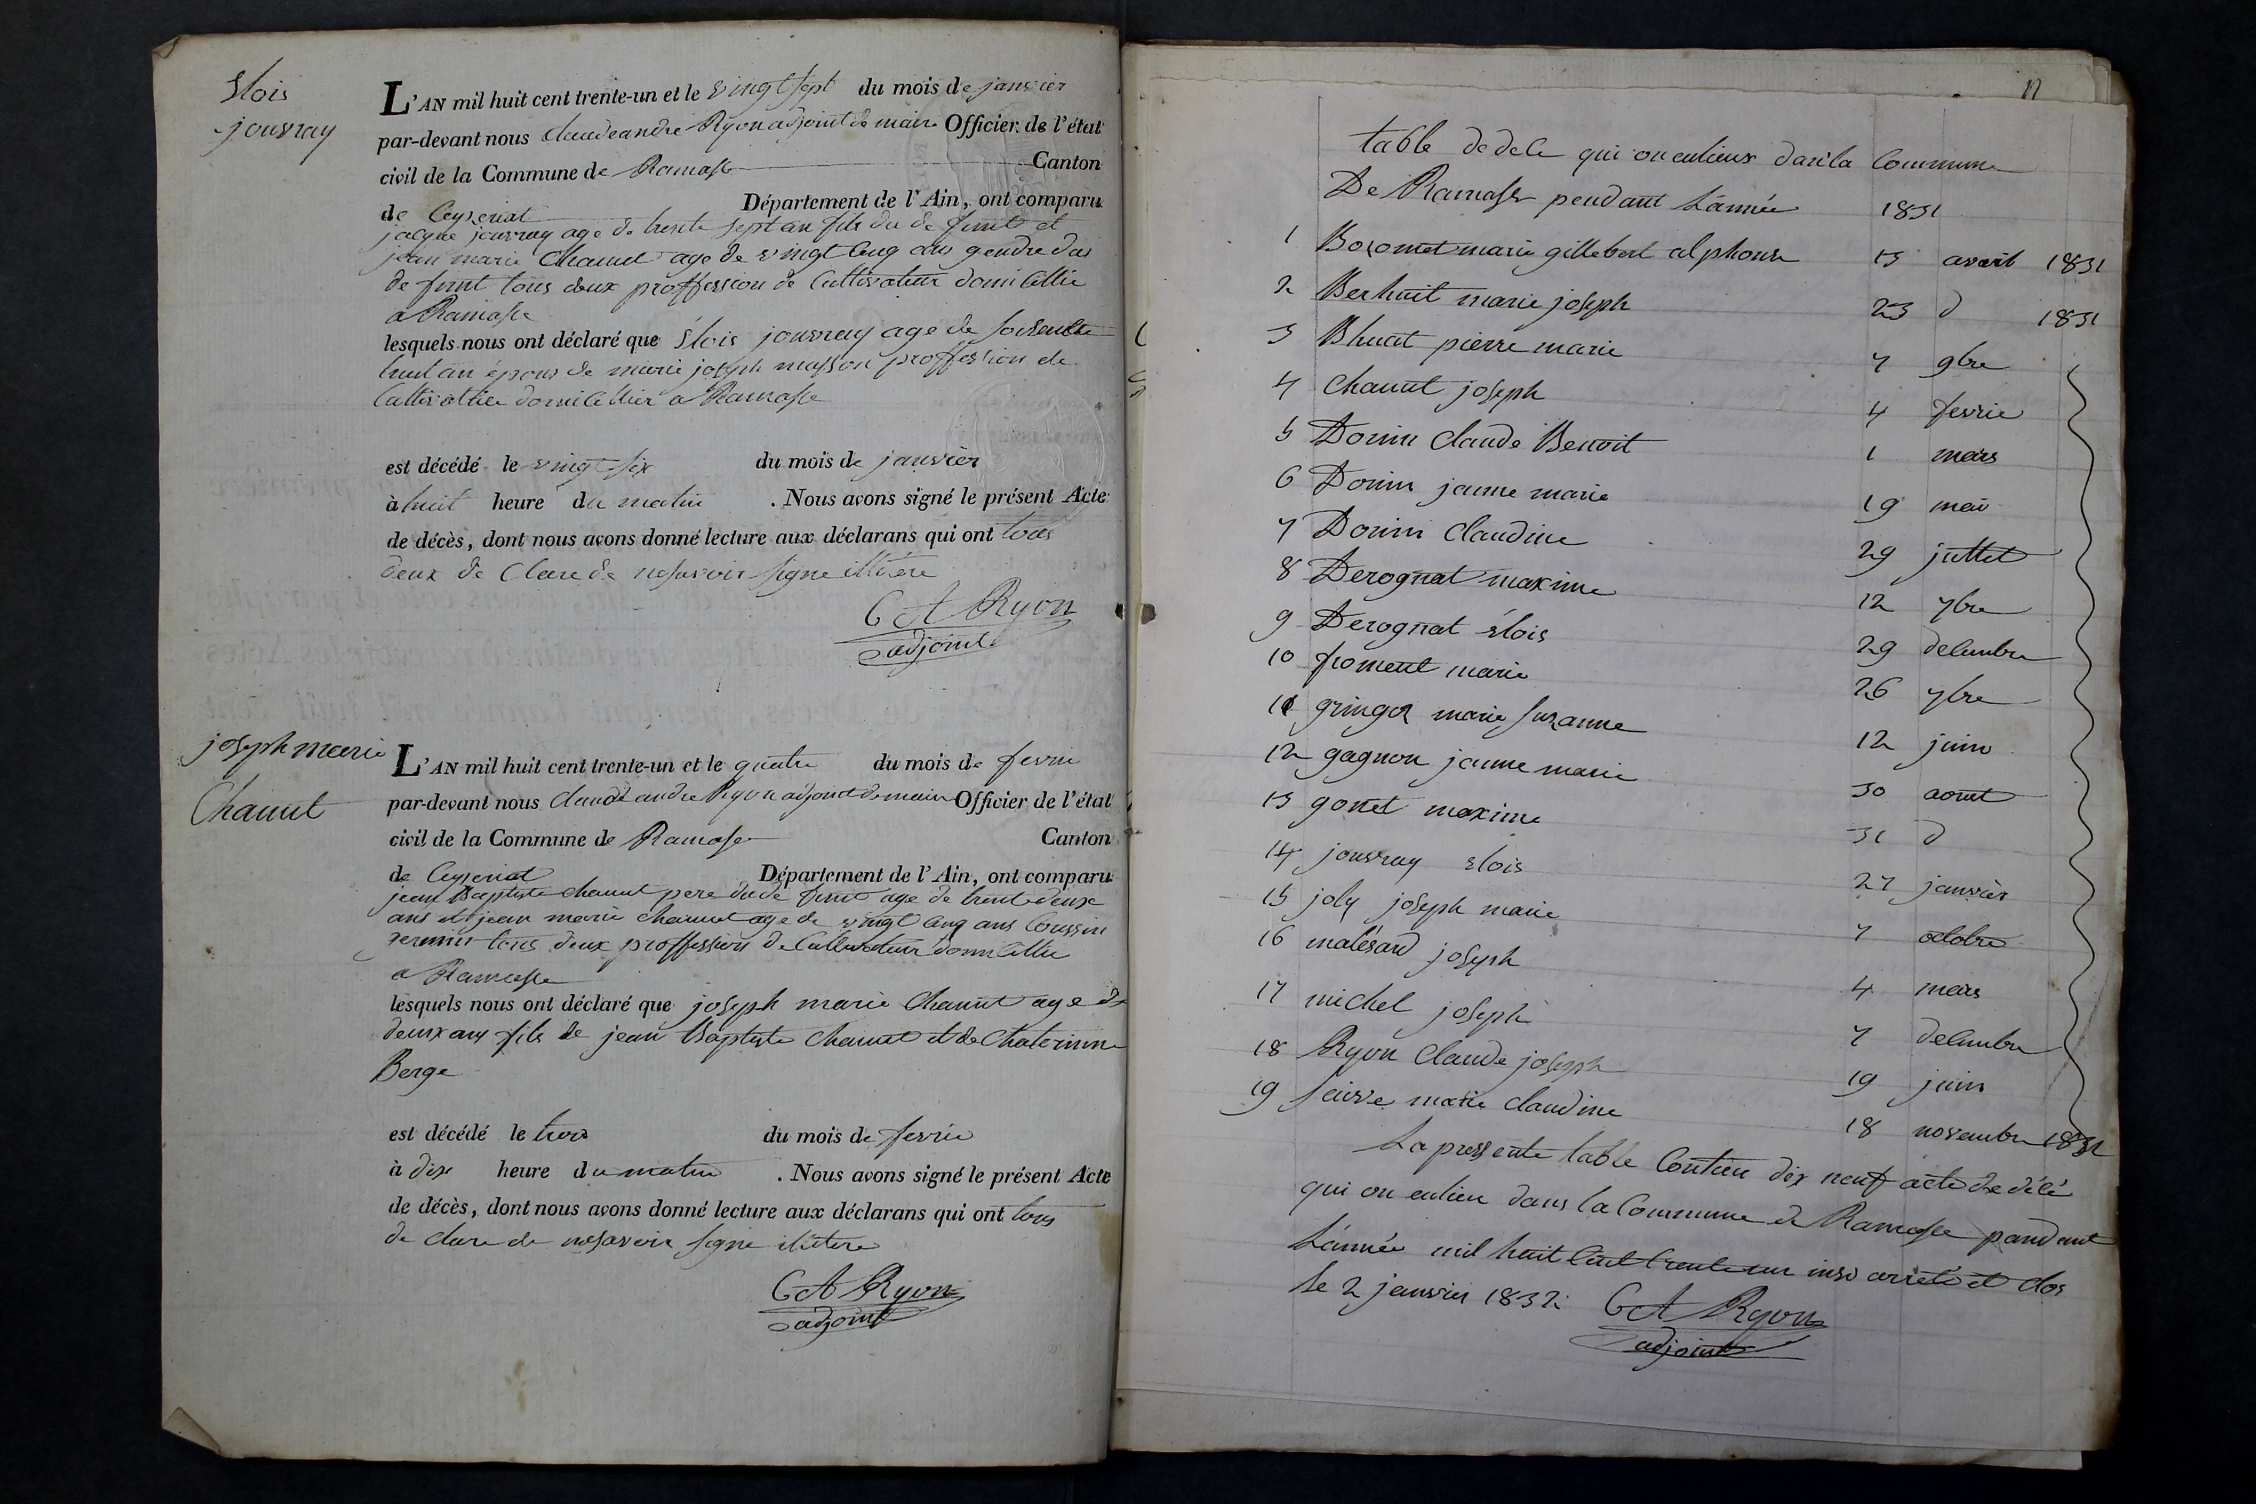 Élois
jouvray
L'AN mil huit cent trente-un et le vingt sept du mois de janvier
par-devant nous claude andre Ryon adjoint de maire Officier de l'état
civil de la Commune de Ramasse Canton
de Ceyzeriat Département de l'Ain, ont comparu
jacque jouvray age de trente sept an fils du de funt et
jean marie Chanut age de vingt cinq ans gendre du
de funt tous deux proffession de Cultivateur domicillie
a Ramasse
lesquels nous ont déclaré que Élois jouvray age de soixante
huit an épous de marie joseph masson proffession de
Cultivateur domicillier a Ramasse
est décédé le vingt six du mois de janvier
à huit heure du matin . Nous avons signé le présent Acte
de décès, dont nous avons donné lecture aux déclarans qui ont tous
deux de clare de nesavoir signe
C A Ryon
adjoint
joseph marie
Chanut
L'AN mil huit cent trente-un et le quatre du mois de fevrie
par-devant nous claude andre Ryon adjoint de maire Officier de l'état
civil de la Commune de Ramasse Canton
de Ceyzeriat Département de l'Ain, ont comparu
jean Baptiste chanut pere du de funt age de trente deux
ans et jean marie chanut age de vingt cinq ans Coussin
germin tous deux proffession de Cultivateur domicillie
a Ramasse
lesquels nous ont déclaré que joseph marie Chanut age de
deux ans fils de jean Baptiste chanut et de Chaterinne
Berge
est décédé le trois du mois de fevrie
à dix heure du matin . Nous avons signé le présent Acte
de décès, dont nous avons donné lecture aux déclarans qui ont tous
de clare de nesavoir signe
C A Ryon
adjoint
table de dece qui on eulieux dans la Commune
De Ramasse pendant L'année 1831
1 Bozonnet marie gillebert alphonse 13 avril 1831
2 Berhuit marie joseph 23 d 1831
3 Bhuat pierre marie 7 9bre
4 chanut joseph 4 fevrie
5 Donin Claude Benoit 1 mars
6 Donin janne marie 19 mai
7 Donin Claudine 29 juttet
8 Derognat maxime 12 7bre
9 Derognat élois 29 decembre
10 froment marie 26 7bre
11 gringoz marie suzanne 12 juin
12 gagnon janne marie 30 aout
13 gonet maxime 31 d
14 jouvray elois 27 janvier
15 joly joseph marie 7 octobre
16 malésard joseph 4 mars
17 michel joseph 7 decembre
18 Ryon Claude joseph 19 juin
19 faivre marie claudine 18 novembre 1831
La pressente table Contien dix neuf acte de décé
qui on eulieu dans la Commune de Ramasse pandant
L'année mil huit Cent trente un insi arrété et clos
Le 2 janvier 1832
C A Ryon
adjoint